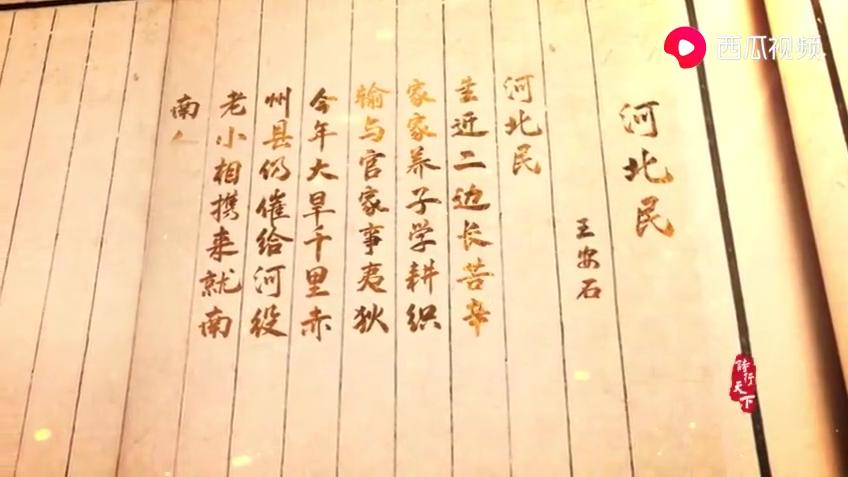 西瓜视频
河北民
王安石
河北民
生近二边长苦辛
家家养子学耕织
输与官家事夷狄
今年大旱千里赤
州县仍催给河役
老小相携来就南
南人
诗行天下